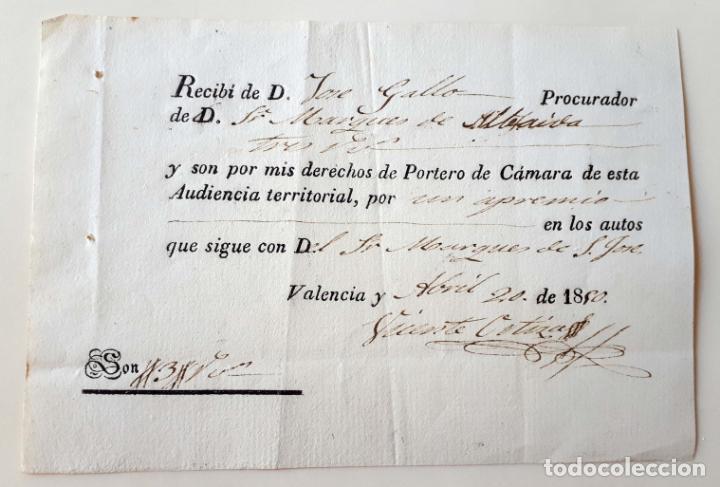 Recibí de D. Jose Gallo Procurador
de D. Sr Marques de Albaida
tres Rs
y son por mis derechos de Portero de Cámara de esta
Audiencia territorial, por un apremio
en los autos
que sigue con Del Sr Marques de S. Jose.
Valencia y Abril 20 de 1850.
Vicente
Son 3 Rs
todocoleccion.net